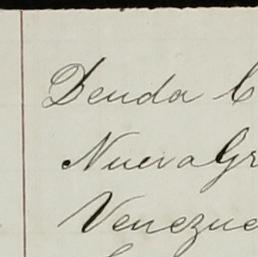 Deuda C
Nueva Gr
Venezue